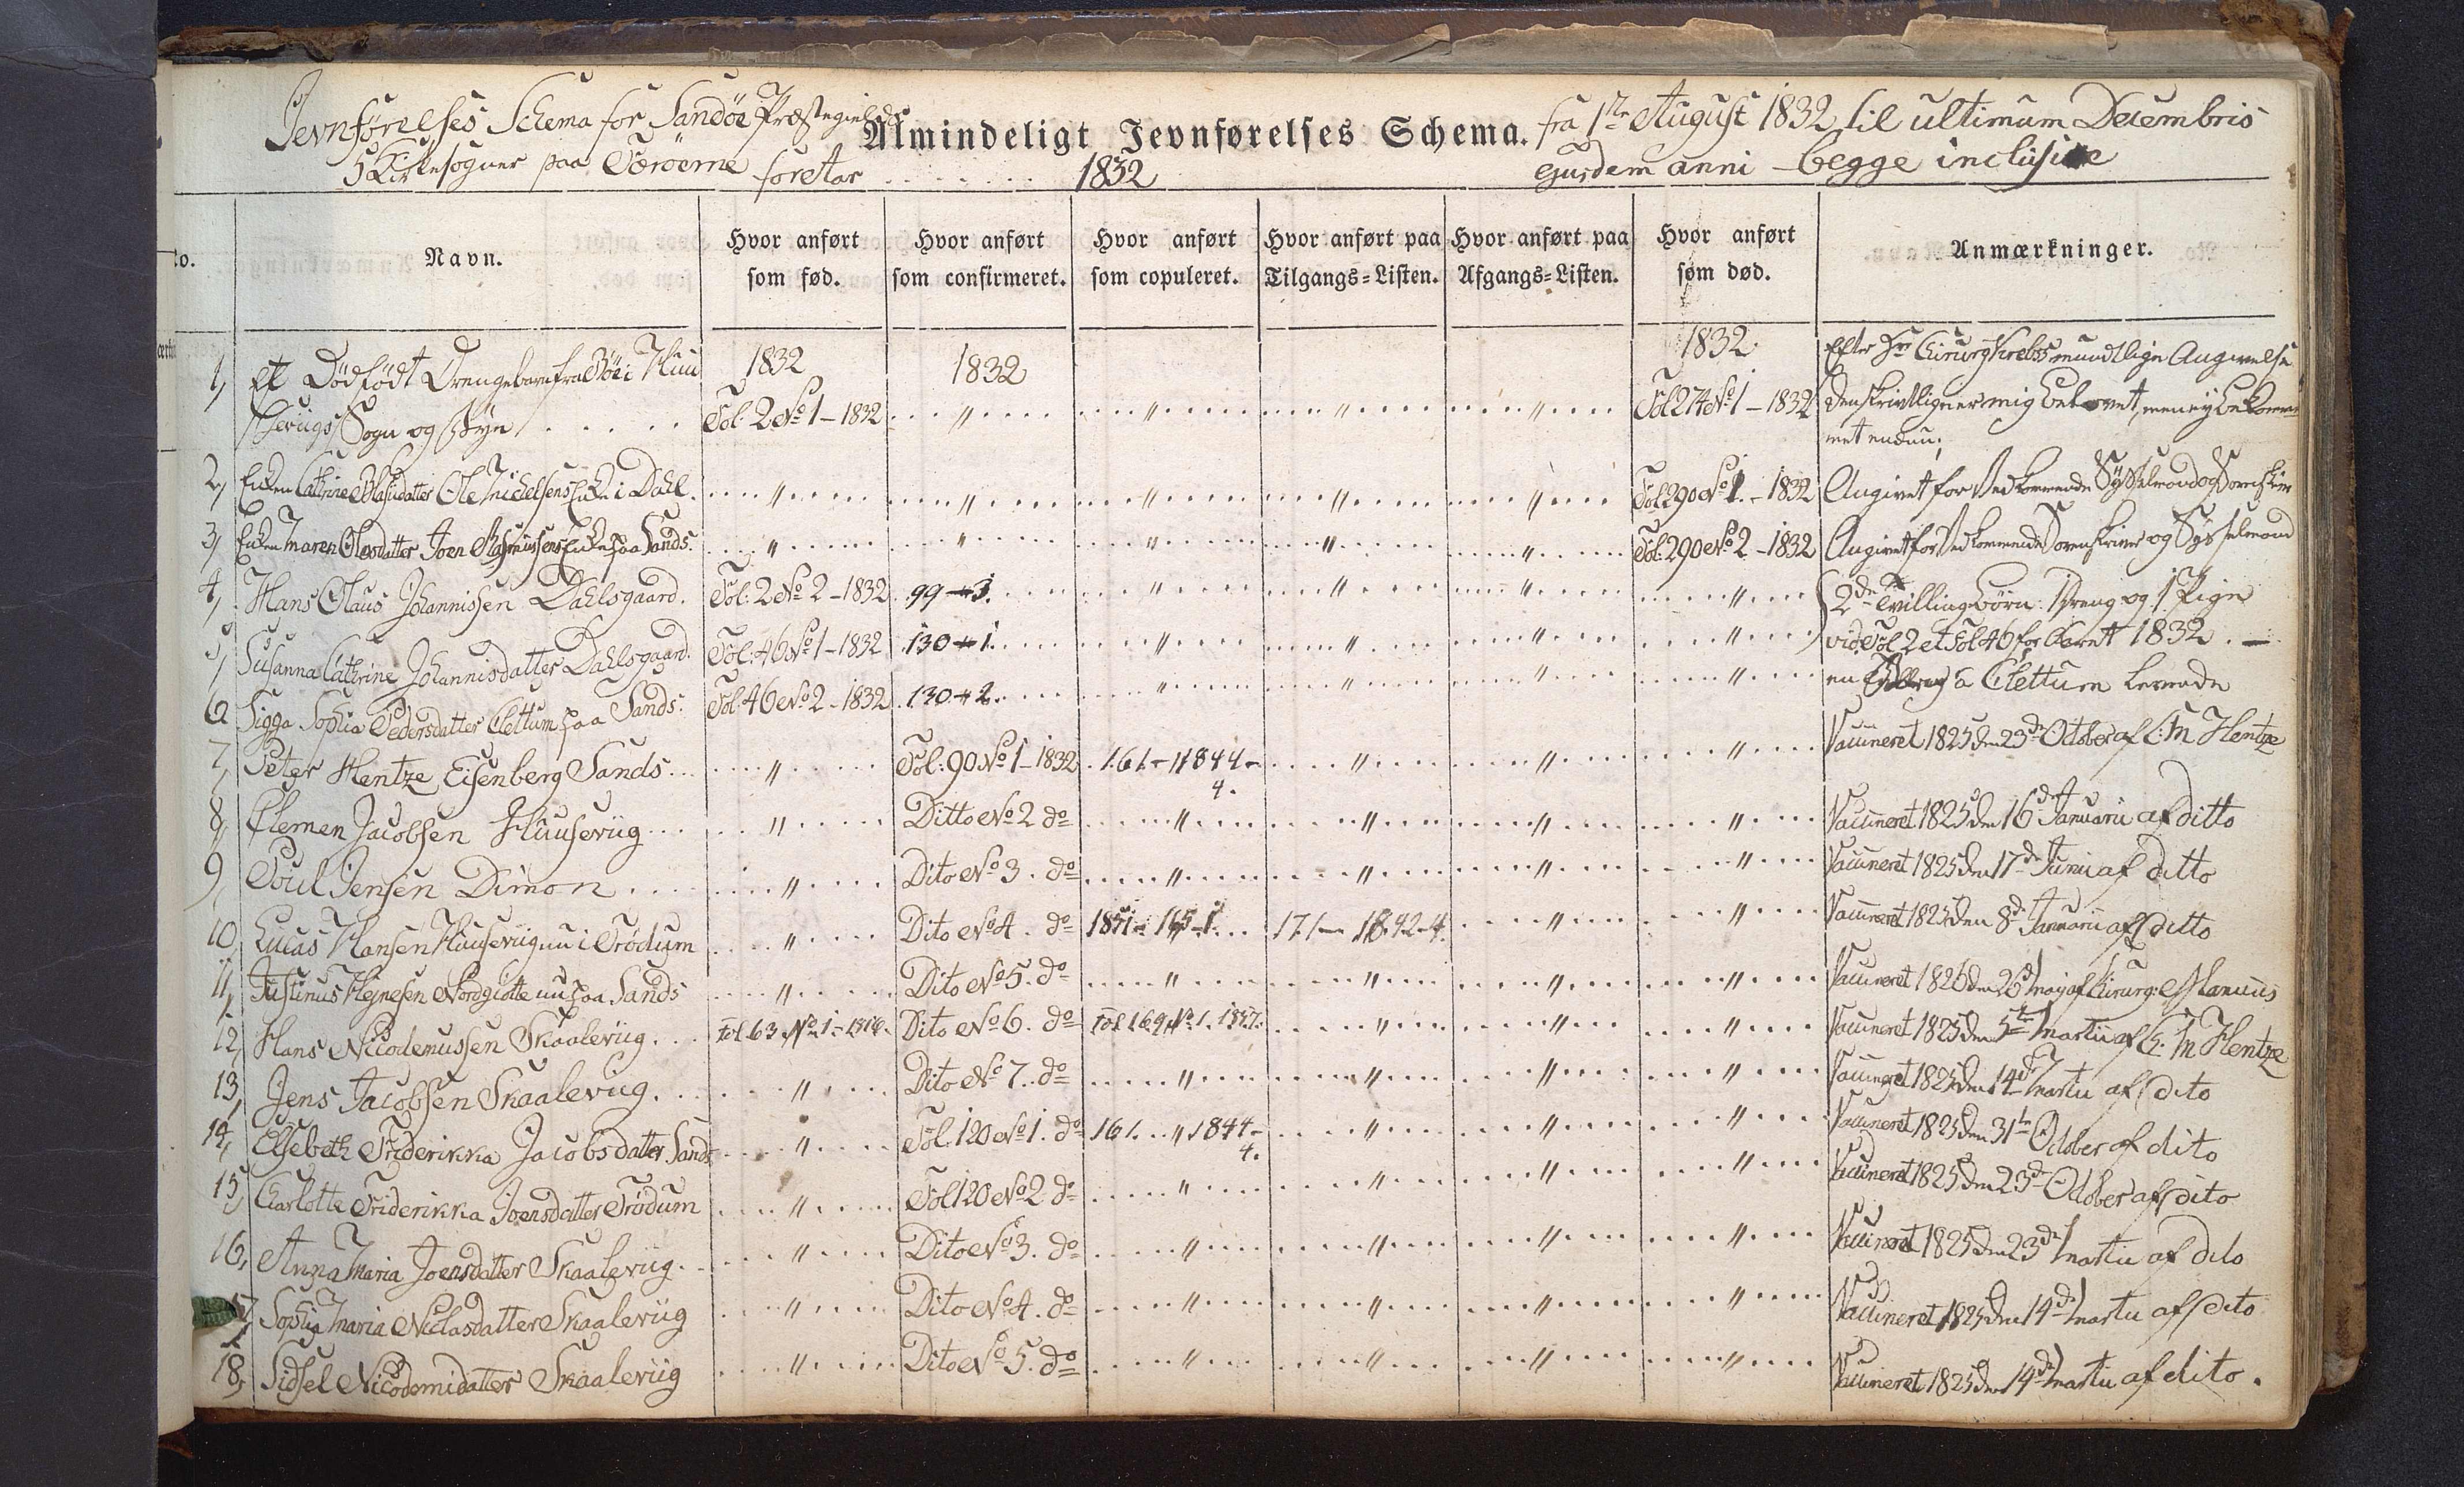 Jevnførelses Schema for Sandöe Præstegields
Almindeligt Jevnførelses Schema.
fra 1ste August 1832 til ultimum Decembris
5 Kirkesogner paa Færöerne for et Aar 1832
ejusdem anni - begge inclusive
No.
Navn.
Hvor anført som fød.
Hvor anført som confirmeret.
Hvor anført som copuleret.
Hvor anført paa Tilgangs=Listen.
Hvor anført paa Afgangs=Listen.
Hvor anført som død.
Anmærkninger.
1832 1832 1832
1, et Dödfödt Drengebarn fra Böe i Huu Efter Hr Chirurg Krebs mundtlige Angivelse
sevugs Sogn og Bye Fol. 2 No 1 - 1832 " " " " Fol 274 No 1 - 1832 den skrivtlige er mig belovet, men ej bekom
met endnu;
2, Enken Cathrine Ole Michelsens Enke i Dahl. " " " " " Fol 290 No 1. - 1832 Angivet for Vedkommende Sysselmand og Sorenskriv
3, Enken Maren Olesdatter Joen Rasmussens Enke paa Sands. " " " " " Fol: 290 No 2 - 1832 Angivet for Vedkommende Sorenskriver og Sysselmand
4, Hans Olaus Johannissen Dahlsgaard. Fol: 2 No 2 - 1832 99 + 3. " " " " 2de Tvillingbörn: 1 Dreng og 1 Pige
5, Susanna Cathrine Johannisdatter Dahlsgaard. Fol: 46 No 1 - 1832 130 + 1. " " " " vid. Fol 2 et Fol 46 for Aaret 1832. -
6, Sigga Sophia Pedersdatter Clettum paa Sands. Fol. 46 No 2 - 1832 130 + 2. " " " " en a Clettum
7, Peter Hentze Eisenberg Sands " Fol: 90 No 1 - 1832 161 - " 1844 - 4. " " " Vaccineret 1825 den 23de October af C: M Hentze
8, Clemen Jacobsen Huusevug " Ditto No 2 do " " " " Vaccineret 1825 den 16de Januarii af ditto
9, Poul Jensen Dimon " Dito No 3. do " " " " Vaccineret 1825 den 17de Junii af ditto
10, Lucas Hansen Huusevug nu i Trödum " Dito No 4. do 1851 - 165 - 1. 171 - 1842 - 4. " " Vaccineret 1825 den 8de Januarii af ditto
11, Justinus Hejnesen Nordgiötte nu paa Sands " Dito No 5. do " " " " Vaccineret 1826 den 26de Maj af Chirurg: Manicus
12, Hans Nicodemussen Skaalevug. fol. 63 No 1 - 1816. Dito No 6. do Fol 169 No 1. 1857. " " " Vaccineret 1825 den 5te Martii af C: M Hentze
13, Jens Jacobsen Skaalevug. " Dito No 7. do " " " " Vaccineret 1825 den 14de Martii af dito
14, Elsebeth Friderikka Jacobsdatter Sands " Fol. 120 No 1. do 161. " 1844 - 4. " " " Vaccineret 1825 den 31te October af dito
15, Charlotte Friderikka Joensdatter Trödum " Fol 120 No 2 do " " " " Vaccineret 1825 den 23de October af dito
16, Anna Maria Joensdatter Skaalevug. " Dito No 3. do " " " " Vaccineret 1825 den 23de Martii af dito
17 Sophia Maria Niclasdatter Skaalevug " Dito No 4. do " " " " Vaccineret 1825 den 14de Martii af dito
18, Sidsel Nicodemidatter Skaalevug " Dito No 5. do " " " " Vaccineret 1825 den 14de Martii af dito.